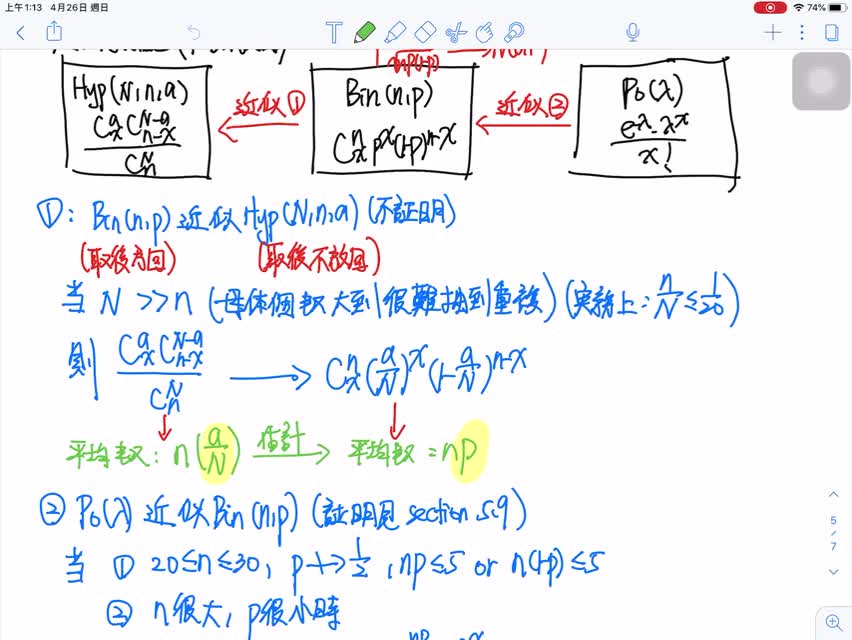 上午1:13 4月26日 週日
74%
Hyp(N,n,a)
C^a_x C^{N-a}_{n-x}
C^N_n
近似①
Bin(n,p)
C^n_x p^x(1-p)^{n-x}
近似②
Po(λ)
e^{-λ}·λ^x
x!
①: Bin(n,p) 近似 Hyp(N,n,a) (不証明)
(取後方回) (取後不放回)
当 N >> n (母体個数大到很難抽到重複) (実務上: n/N ≤ 1/20)
則 C^a_x C^{N-a}_{n-x} / C^N_n → C^n_x (a/N)^x (1-a/N)^{n-x}
平均数: n(a/N) 估計→ 平均数 = np
② Po(λ) 近似 Bin(n,p) (証明見 section 5.9)
当 ① 20≤n≤30, p↛1/2, np≤5 or n(1-p)≤5
② n很大, p很小時
5
/
7